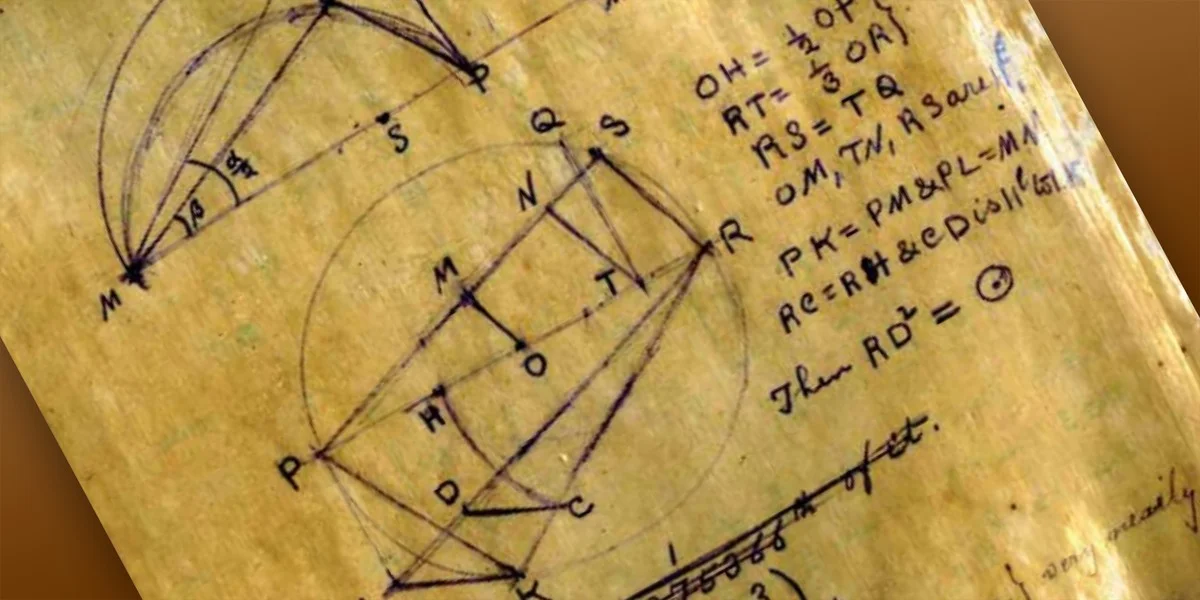 P
S
α/2
β
M
Q
S
N
R
M
T
O
H
P
D
C
K
OH = ½ OP
RT = ⅓ OR}
RS = TQ
OM, TN, RS are
PK = PM & PL = MN
RC = RH & CD is ||l to
Then RD² = ⊙
th of it.
very nearly